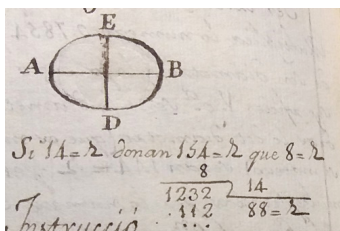 E
A B
D
Si 14=2 donan 154=2 que 8=2
8
1232 14
112 88=2
Instrucció